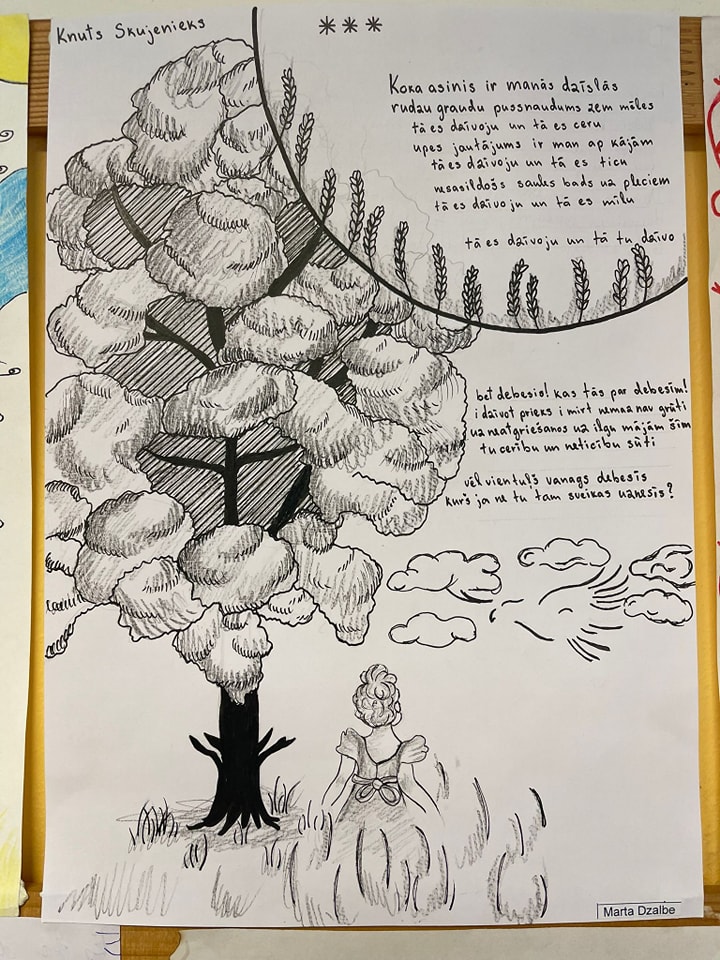 Knuts Skujenieks
***
Koka asinis ir manās dzīslās
rudzu graudu pussnaudums zem mēles
tā es dzīvoju un tā es ceru
upes jautājums ir man ap kājām
tā es dzīvoju un tā es ticu
nesasildošs saules bads uz pleciem
tā es dzīvoju un tā es mīlu
tā es dzīvoju un tā tu dzīvo
bet debesio! kas tās par debesīm!
i dzīvot prieks i mirt nemaz nav grūti
uz neatgriešanos uz ilgu mājām šīm
tu cerību un neticību sūti
vēl vientuļš vanags debesīs
kurš ja ne tu tam sveikas uznesīs?
Marta Dzalbe